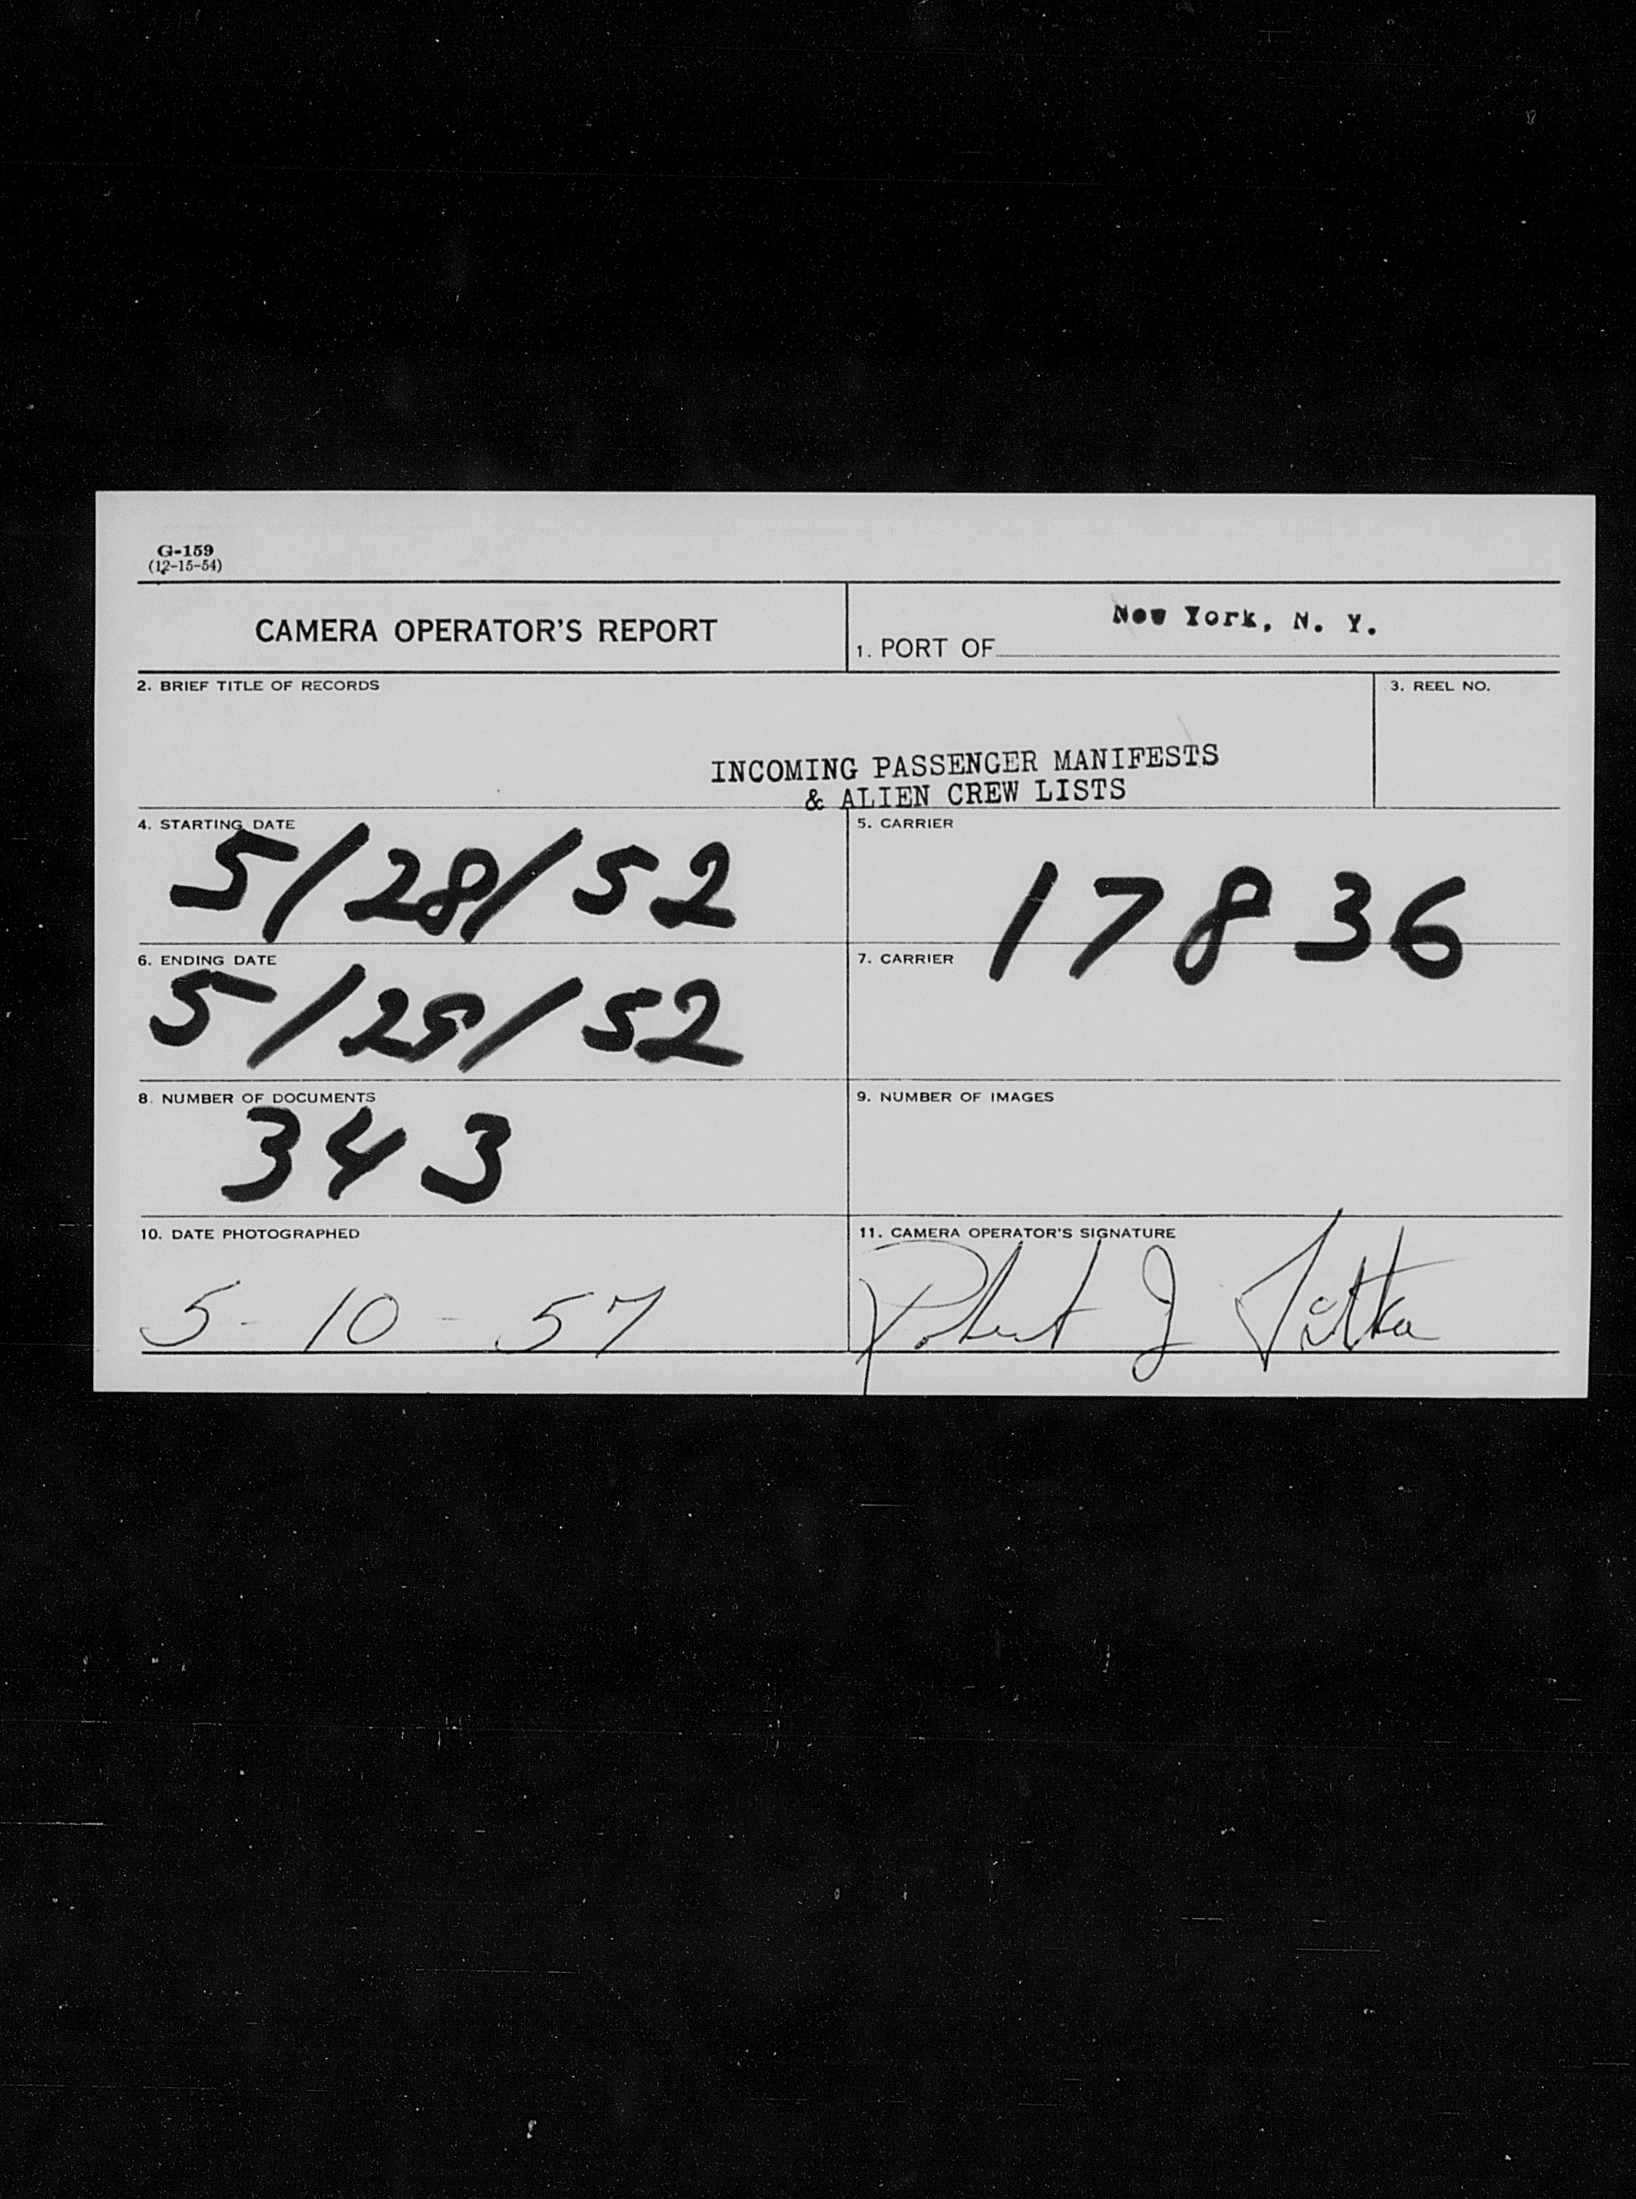 G-159
(12-15-54)
CAMERA OPERATOR'S REPORT
1. PORT OF New York, N. Y.
2. BRIEF TITLE OF RECORDS
3. REEL NO.
INCOMING PASSENGER MANIFESTS
& ALIEN CREW LISTS
4. STARTING DATE
5/28/52
5. CARRIER
17836
6. ENDING DATE
5/29/52
7. CARRIER
8. NUMBER OF DOCUMENTS
343
9. NUMBER OF IMAGES
10. DATE PHOTOGRAPHED
5-10-57
11. CAMERA OPERATOR'S SIGNATURE
Robert J